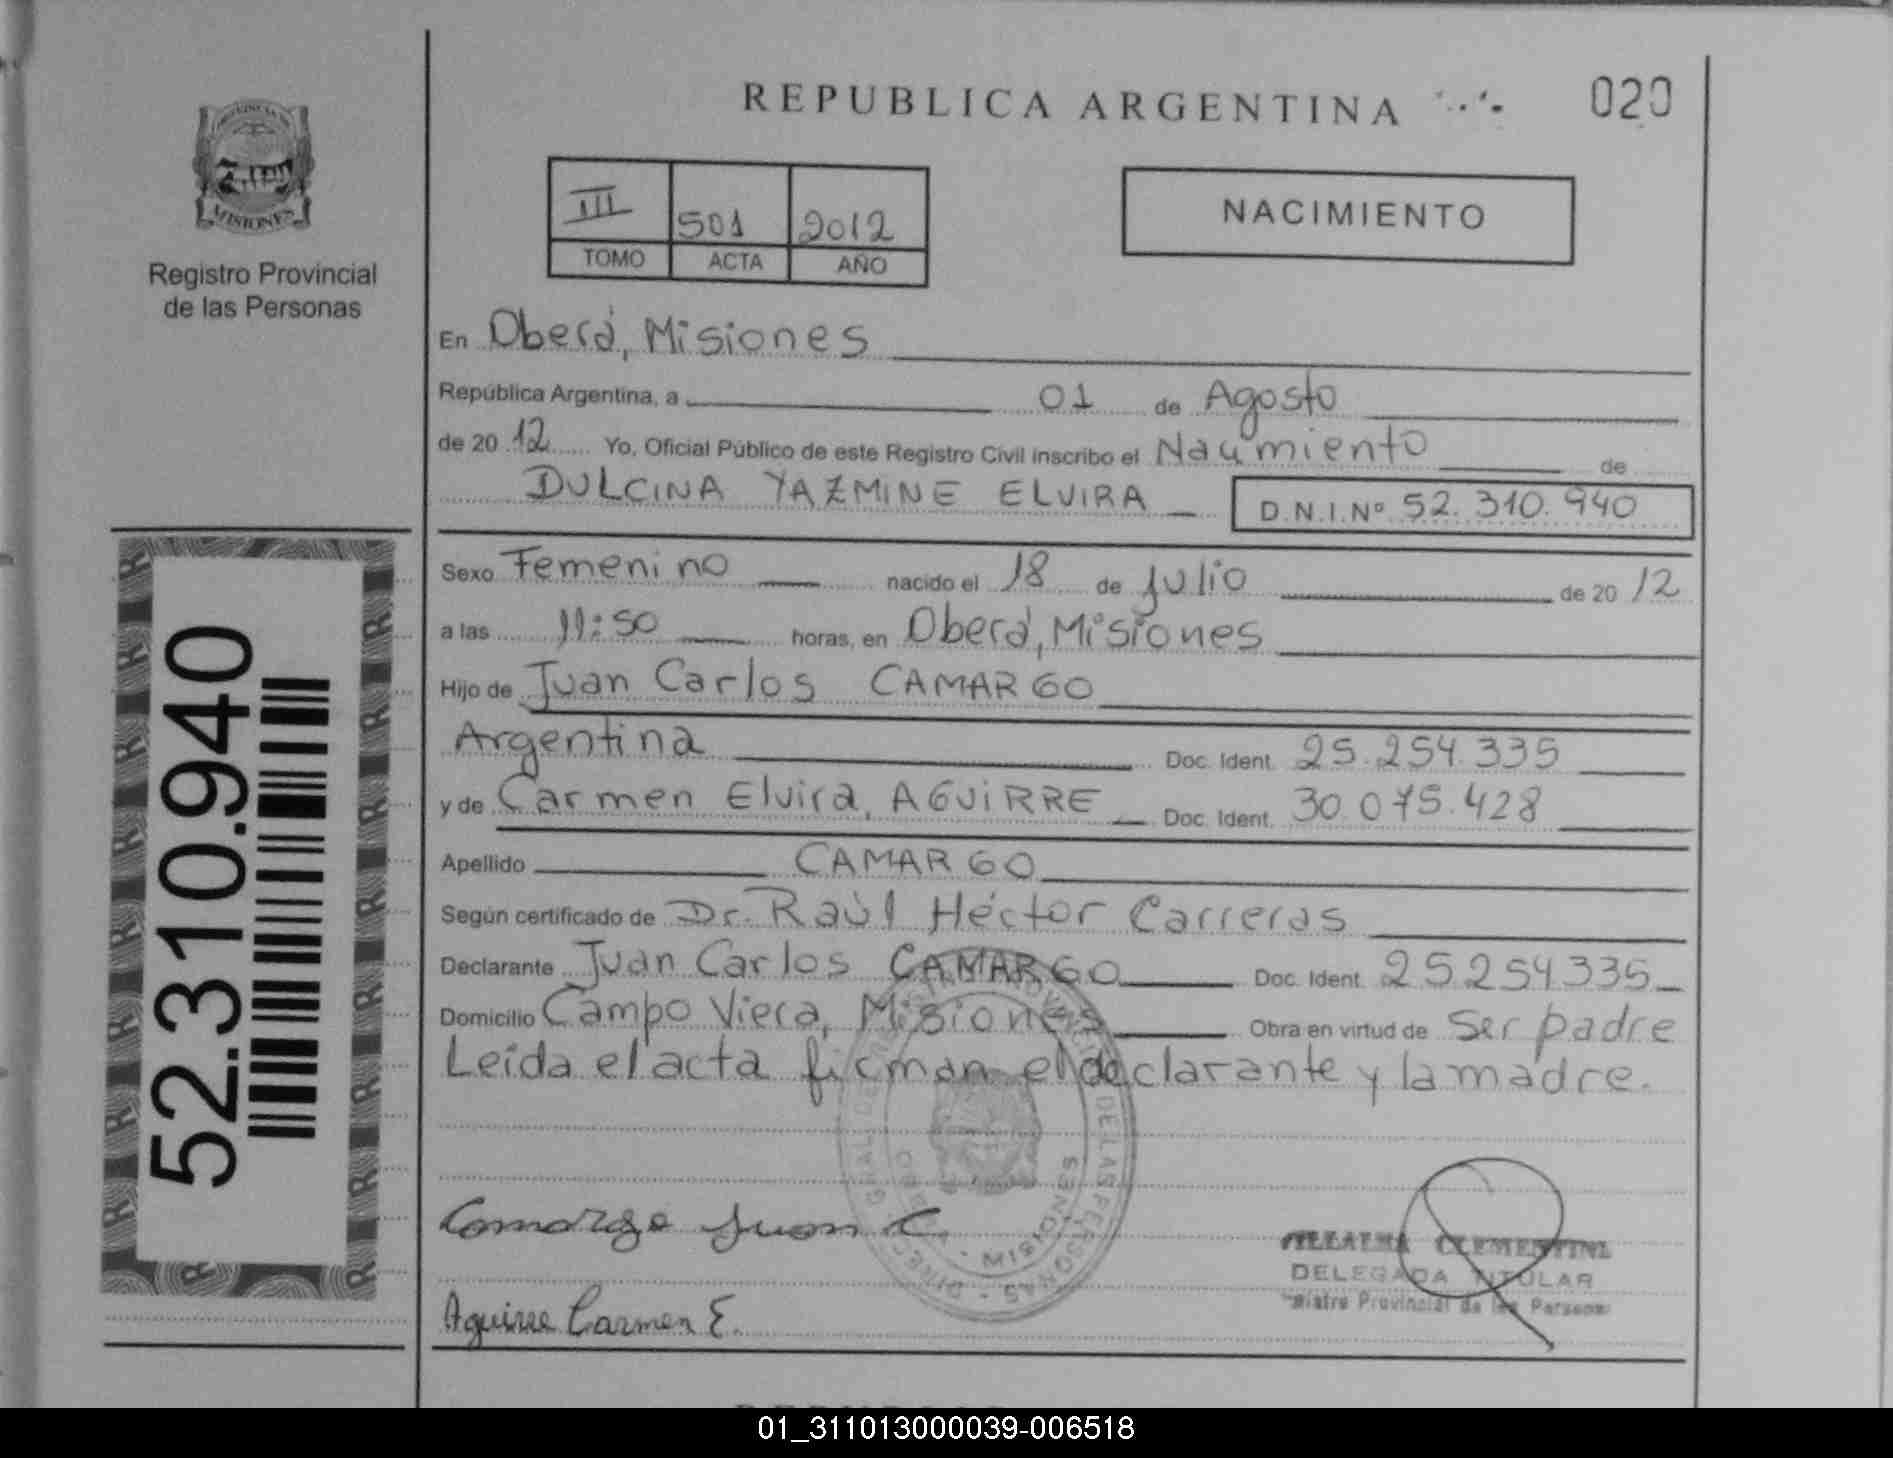 REPUBLICA ARGENTINA
020
MISIONES
Registro Provincial
de las Personas
III 501 2012
TOMO ACTA AÑO
NACIMIENTO
En Oberá, Misiones
República Argentina, a 01 de Agosto
de 20 12 Yo, Oficial Público de este Registro Civil inscribo el Nacimiento de
DULCINA YAZMINE ELVIRA D.N.I.Nº 52.310.940
Sexo Femenino nacido el 18 de Julio de 20 12
a las 11:50 horas, en Oberá, Misiones
Hijo de Juan Carlos CAMARGO
Argentina Doc. Ident. 25.254.335
y de Carmen Elvira, AGUIRRE Doc. Ident. 30.075.428
Apellido CAMARGO
Según certificado de Dr. Raúl Héctor Carreras
Declarante Juan Carlos CAMARGO Doc. Ident. 25254335
Domicilio Campo Viera, Misiones Obra en virtud de Ser padre
Leída el acta firman el declarante y la madre.
52.310.940
Camargo Juan C.
Aguirre Carmen E.
CLEMENTINI
DELEGADA TITULAR
Provincial de las Personas
DE LAS PERSONAS
MISIONES
01_311013000039-006518